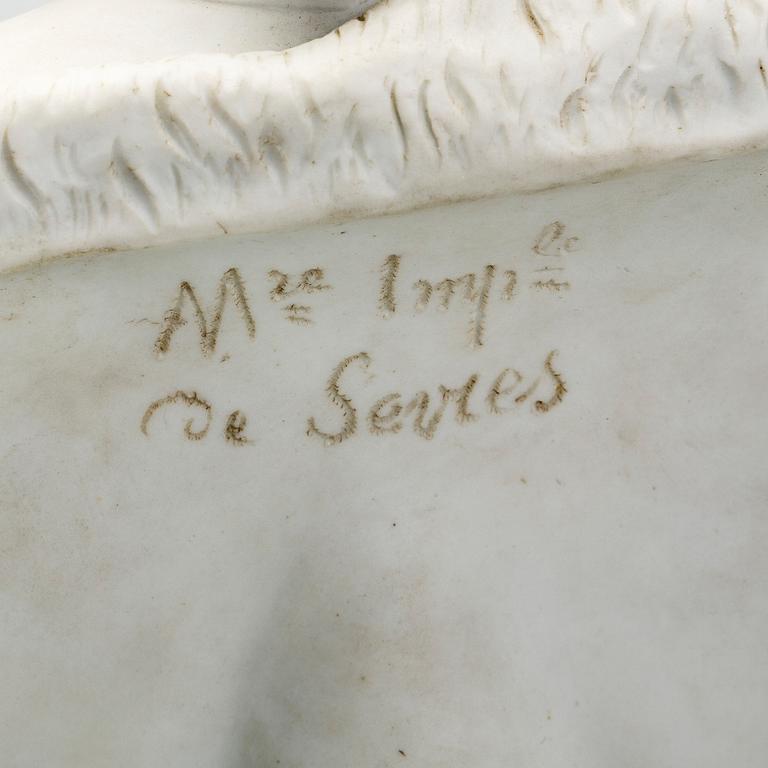 Mre Imple
De Sevres